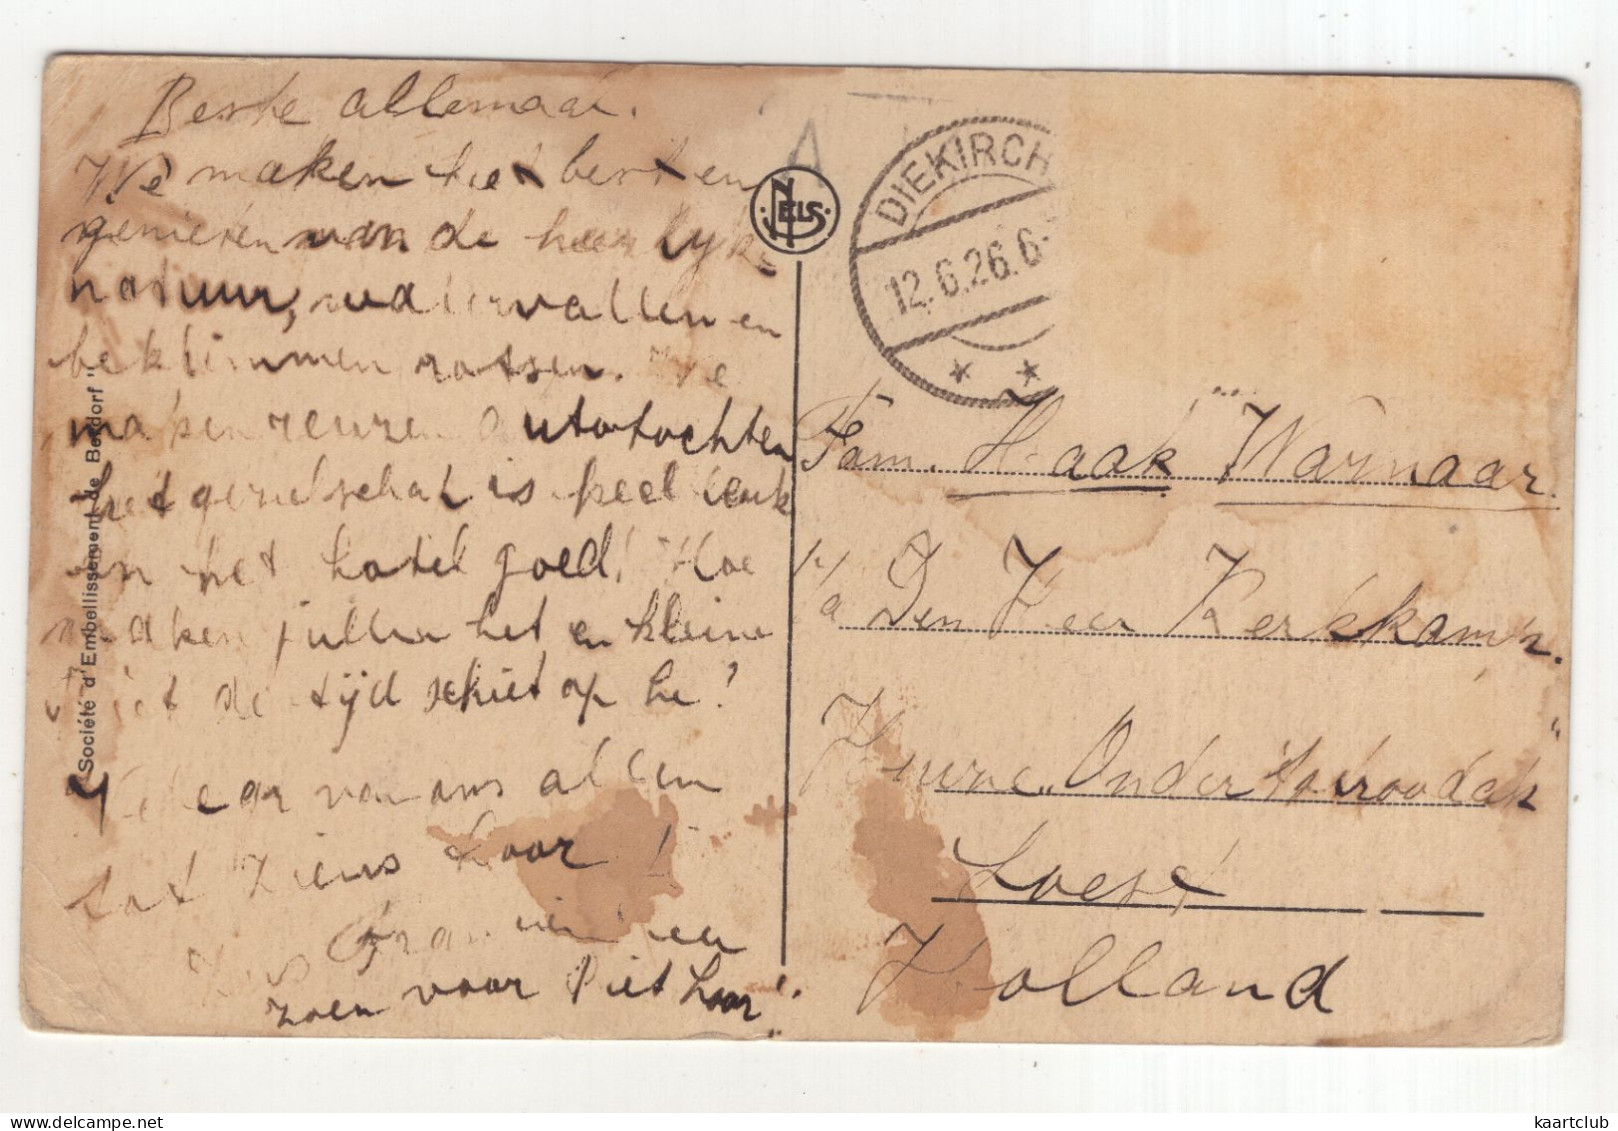 Beste allemaal.
We maken het best en
genieten van de heerlijke
natuur, watervallen en
beklimmen rotsen. We
maken reuzen autotochten
het gezelschap is heel leuk
en het hotel goed! Hoe
maken jullie het en kleine
Piet de tijd schiet op he!
van ons allen
tot ziens hoor!
een
zoen voor Piet hoor!
"Société d'Embellissement de Berdorf"
NELS
DIEKIRCH
12.6.26.6-
Fam. Haak Warnaar.
p/a Den Heer Kerkkamp.
Huize "Onder 't strooidak"
Soest
Holland
kaartclub